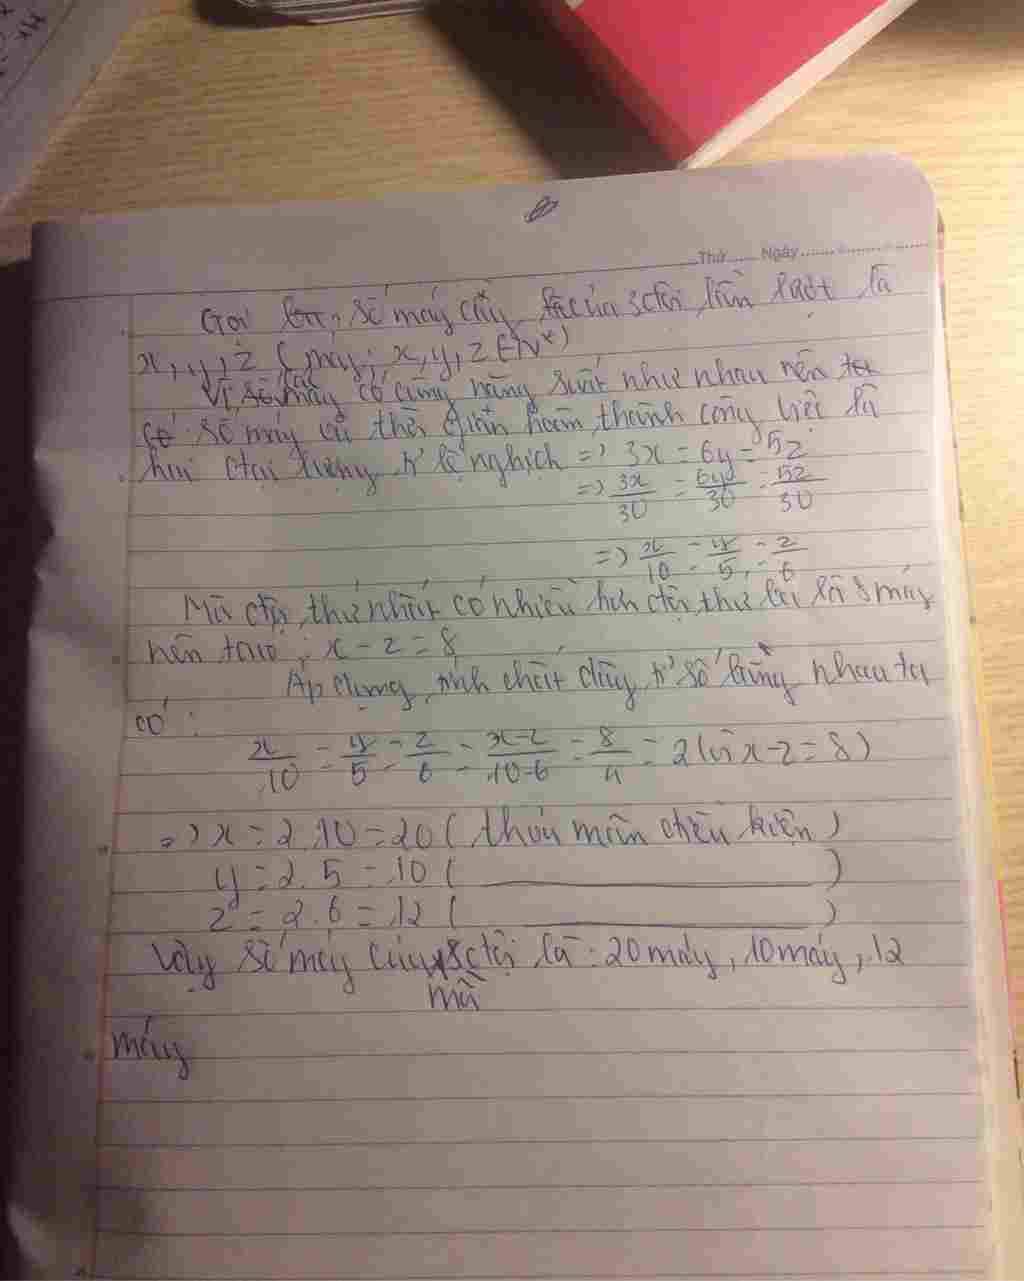 Thứ...... Ngày......
Gọi số máy cày của 3 đội lần lượt là
x, y, z (máy; x, y, z ∈ N*)
Vì số máy có cùng năng suất như nhau nên ta
có số máy và thời gian hoàn thành công việc là
hai đại lượng tỉ lệ nghịch => 3x = 6y = 5z
=> 3x/30 = 6y/30 = 5z/30
=> x/10 = y/5 = z/6
Mà đội thứ nhất có nhiều hơn đội thứ là 8 máy
nên ta có : x - z = 8
Áp dụng tính chất dãy tỉ số bằng nhau ta
có :
x/10 = y/5 = z/6 = x-z/10-6 = 8/4 = 2 (vì x-z = 8)
=> x = 2.10 = 20 ( thỏa mãn điều kiện )
y = 2.5 = 10 ( )
z = 2.6 = 12 ( )
Vậy số máy của 3 đội là : 20 máy, 10 máy, 12
máy